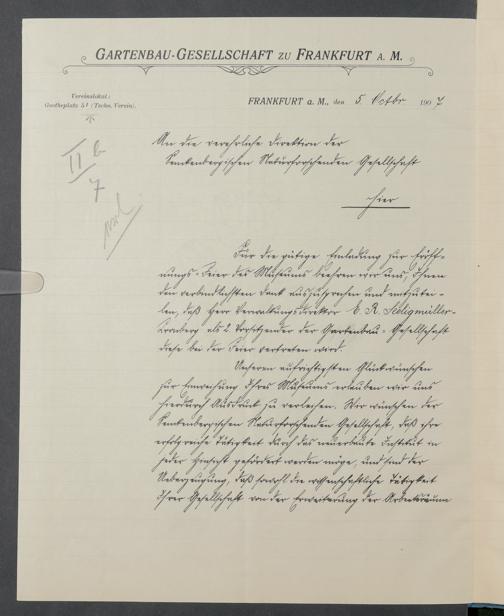 GARTENBAU-GESELLSCHAFT ZU FRANKFURT A. M.
Vereinslokal:
Goetheplatz 5I (Techn. Verein).
FRANKFURT a. M., den 5. Octbr 1907
An die verehrliche Direktion der
Senkenbergischen Naturforschenden Gesellschaft
hier
II b
7
Für die gütige Einladung zur Eröff-
nungs-Feier des Museums beehren wir uns, Ihnen
den verbindlichsten Dank auszusprechen und mitzutei-
len, daß Herr Verwaltungsdirektor E. R. Seligmüller-
Kronberg als 2. Vorsitzender der Gartenbau-Gesellschaft
diese bei der Feier vertreten wird.
Unseren aufrichtigsten Glückwünschen
zur Einweihung Ihres Museums erlauben wir uns
hierdurch Ausdruck zu verleihen. Wir wünschen der
Senkenbergischen Naturforschenden Gesellschaft, daß ihre
erfolgreiche Tätigkeit durch das neuerbaute Institut in
jeder Hinsicht gefördert werden möge, und sind der
Ueberzeugung, daß sowohl die wissenschaftliche Tätigkeit
Ihrer Gesellschaft von der Erweiterung der Arbeitsräume